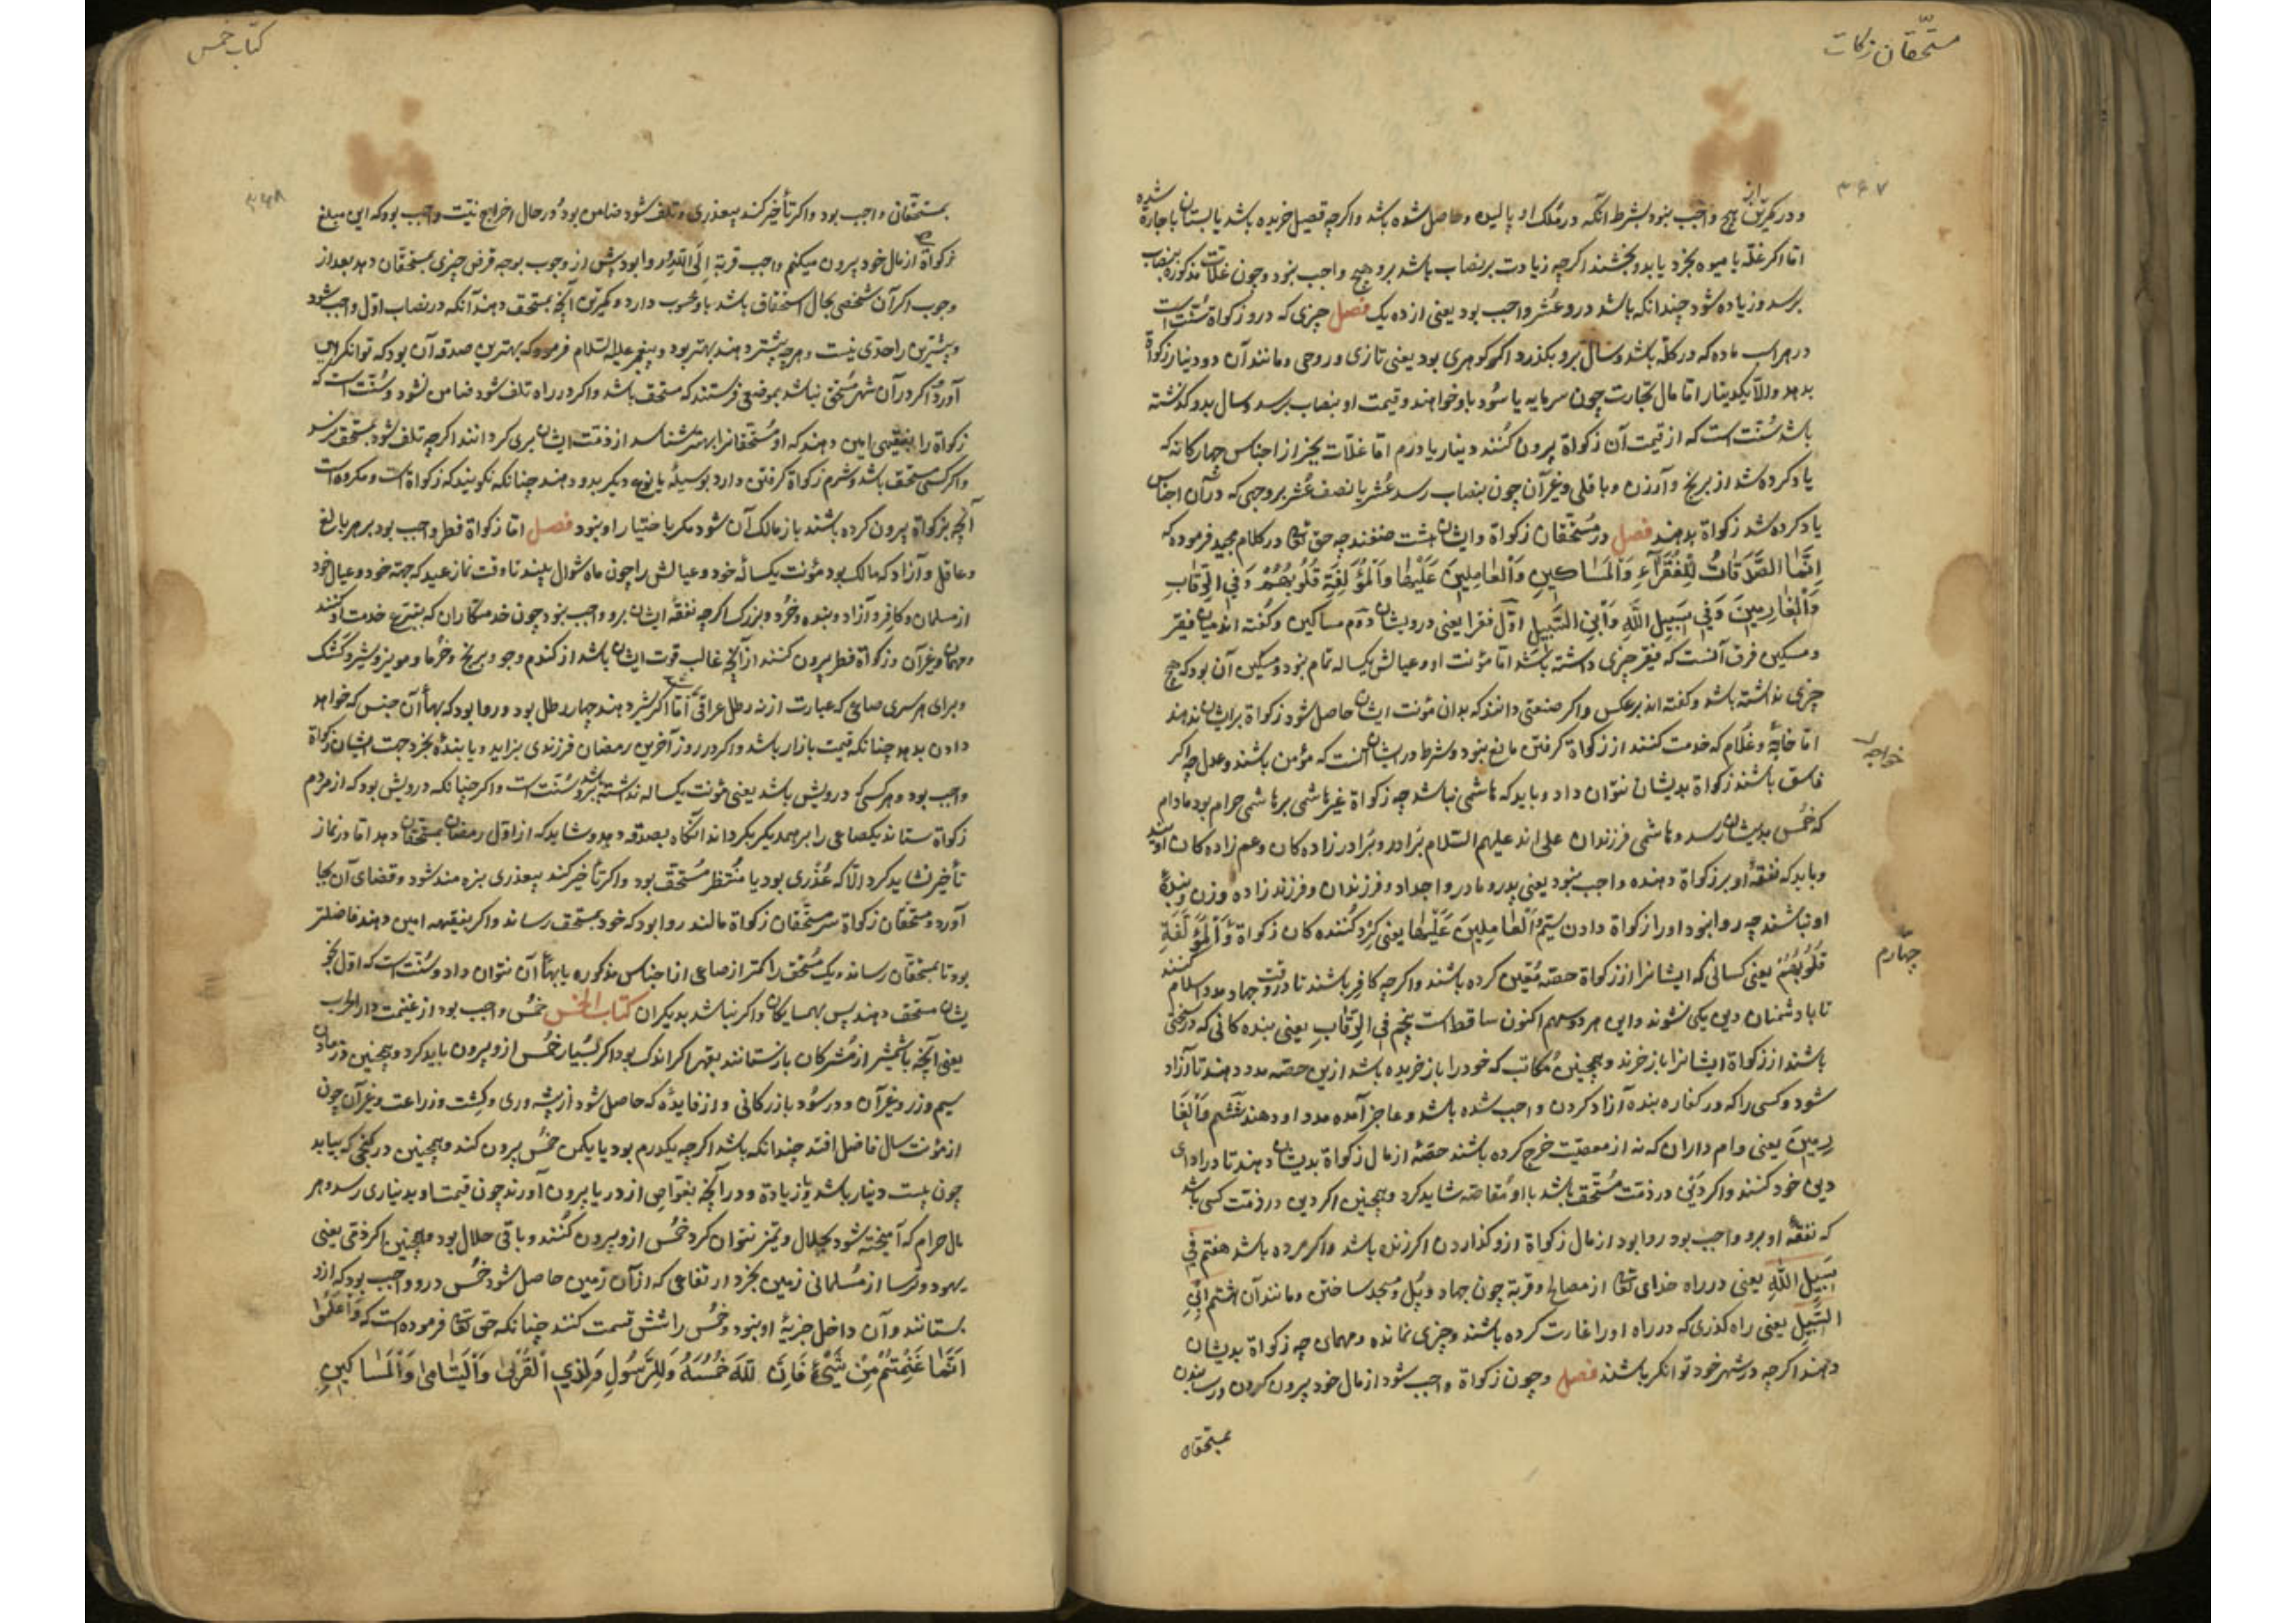 مستحقان زکات
۳۶۷
و در کمتر ازین هیچ واجب نبود بشرط انکه در ملک او بالیده و حاصل شده باشد و اکرچه قصیل خریده باشد یا بستان باجاره شده
اما اکر غله یا میوه بخرد یا بدو بخشند اکرچه زیادت بر نصاب باشد برو هیچ واجب نبود و چون غلات مذکوره بنصاب
برسد و زیاده شود چندانکه باشد درو عشر واجب بود یعنی از ده یک فصل چیزی که درو زکواة سنت است
در هر اسب ماده که در کله باشد و سال برو بکذرد اکر کوهری بود یعنی تازی و روحی و مانند آن دو دینار زکواة
بدهد والا یکدینار اما مال تجارت چون سرمایه یا سود باو خواهند و قیمت او بنصاب برسد و سال بدو کذشته
باشد سنت است که از قیمت آن زکواة بیرون کنند دینار یا درم اما غلات بجز از اجناس چهارکانه که
یاد کرده شد از برنج و آرزن و باقلی و غیر آن چون بنصاب رسد عشر یا نصف عشر بر وجهی که در آن اجناس
یاد کرده شد زکواة بدهند فصل در مستحقان زکواة و ایشان هشت صنفند چه حق تعالی در کلام مجید فرموده که
اِنَّمَا الصَّدَقاتُ لِلْفُقَرآءِ وَالْمَسٰاکینِ وَالْعٰامِلِینَ عَلَیْهٰا وَالْمُؤَلَّفَةِ قُلُوبُهُمْ وَفِی الرِّقٰابِ
وَالْغٰارِمینَ وَفی سَبیلِ اللّٰهِ وَابْنِ السَّبیلِ اول فقرا یعنی درویشان دوم مساکین و کفته اند میان فقیر
و مسکین فرق آنست که فقیر چیزی داشته باشد اما مؤنت او و عیالش یکساله تمام نبود و مسکین آن بود که هیچ
چیزی نداشته باشد و کفته اند بر عکس و اکر صنعتی دانند که بدان مؤنت ایشان حاصل شود زکواة بر ایشان ندهند
اما خانۀ و غلام که خدمت کنند از زکواة کرفتن مانع نبود و شرط در ایشان آنست که مؤمن باشند و عدل چه اکر
خواجه
فاسق باشند زکواة بدیشان نتوان داد و باید که هاشمی نباشد چه زکواة غیر هاشمی بر هاشمی حرام بود مادام
که خمس بدیشان رسد و هاشمی فرزندان علی اند علیهم السلام برادر و برادر زاده کان و عم زاده کان اویند
و باید که نفقۀ او بر زکواة دهنده واجب نبود یعنی پدر و مادر و اجداد و فرزندان و فرزند زاده و زن و بندۀ
او نباشند چه روا نبود او را زکواة دادن سیّم وَالْعٰامِلینَ عَلَیْهٰا یعنی کرد کننده کان زکواة وَالْمُؤَلَّفَةِ
چهارم
قُلُوبُهُمْ یعنی کسانی که ایشانرا از زکواة حصه معین کرده باشند و اکرچه کافر باشند تا در وقت جهاد مدد اسلام کنند
تا با دشمنان دین یکی نشوند و این هر دو سهم اکنون ساقط است پنجم فِی الرِّقٰابِ یعنی بنده کانی که در سختی
باشند از زکواة ایشانرا باز خرند و همچنین مکاتب که خود را باز خریده باشد ازین حصه مدد دهند تا آزاد
شود و کسی را که در کفاره بنده آزاد کردن واجب شده باشد و عاجز آمده مدد او دهند ششم وَالْغٰا
رِمینَ یعنی وام داران که نه از معصیت خرج کرده باشند حصۀ از مال زکواة بدیشان دهند تا در ادای
دین خود کنند و اکر دینی در ذمت مستحق باشد با او مقاصه شاید کرد و همچنین اکر دین در ذمت کسی باشد
که نفقۀ او برو واجب بود روا بود از مال زکواة ازو کذاردن اکر زنده باشد واکر مرده باشد هفتم فی
سَبیلِ اللّٰهِ یعنی در راه خدای تعالی از مصالح و قربة چون جهاد و پل و مسجد ساختن و مانند آن هشتم ابْنِ
السَّبیلِ یعنی راه کذری که در راه او را غارت کرده باشند و چیزی نمانده و مهمان چه زکواة بدیشان
دهند اکرچه در شهر خود توانکر باشند فصل و چون زکواة واجب شود از مال خود بیرون کردن و رسانیدن
بمستحقان
کتاب خمس
۳۶۸
بمستحقان واجب بود واکر تأخیر کند بیعذری و تلف شود ضامن بود و در حال اخراج نیت واجب بود که این مبلغ
زکواة از مال خود بیرون میکنم واجب قربة اِلَی اللّٰه و روا بود پیش از وجوب بوجه قرض چیزی بمستحقان دهد بعد از
وجوب اکر آن شخصی بحال استحقاق باشد باو محسوب دارد و کمترین آنچه بمستحق دهند آنکه در نصاب اول واجب شود
و بیشترین را حدی نیست و هرچه بیشتر دهند بهتر بود و پیغمبر علیه السلام فرموده که بهترین صدقه آن بود که توانکری
آورد و اکر در آن شهر مستحق نباشد بموضعی فرستند که مستحق باشد واکر در راه تلف شود ضامن نشود و سنت است که
زکواة را بفقیهی امین دهند که او مستحقانرا بهتر شناسد از ذمت ایشان بری کردانند اکرچه تلف شود بمستحق نرسد
واکر کسی مستحق باشد و شرم زکواة کرفتن دارد بوسیلۀ یا نوع دیکر بدو دهند چنانکه نکویند که زکواة است و مکروه است
آنچه بزکواة بیرون کرده باشند باز مالک آن شود مکر باختیار او نبود فصل اما زکواة فطر واجب بود بر هر بالغ
و عاقل و آزاد که مالک بود مؤنت یکسالۀ خود و عیالش را چون ماه شوال ببیند تا وقت نماز عید که جهة خود و عیال خود
از مسلمان و کافر و آزاد و بنده و خرد و بزرک اکرچه نفقۀ ایشان برو واجب نبود چون خدمتکاران که بتبرع خدمت او کنند
و مهمان و غیر آن و زکواة فطر بیرون کنند از آنچه غالب قوت ایشان باشد از کندم و جو و برنج و خرما و مویز و شیر و کشک
و برای هر سری صاعی که عبارت از نه رطل عراقی اما اکر شیر دهند چهار رطل بود و روا بود که بهاء آن جنس که خواهد
دادن بدهد چنانکه قیمت بازار باشد واکر در روز آخرین رمضان فرزندی بزاید و یا بندۀ بخرد جهت ایشان زکواة
واجب بود و هر کسی که درویش باشد یعنی مؤنت یکساله نداشته باشد برو سنت است واکر چنانکه درویش بود که از مردم
زکواة ستاند یکصاعی را بر همدیکر بکرداند آنکاه بصدقه دهد و شاید که از اول رمضان بمستحقان دهد اما در نماز
تأخیر نشاید کرد الا که عذری بود یا منتظر مستحق بود واکر تأخیر کند بیعذری بزه مند شود و قضای آن بجا
آورد و مستحقان زکواة سر مستحقان زکواة مالند روا بود که خود بمستحق رساند واکر بفقیهه امین دهند فاضلتر
بود تا بمستحقان رساند و یک مستحق را کمتر از صاعی از اجناس مذکوره یا بهاء آن نتوان داد و سنت است که اول بخو
یشان مستحق دهند پس بهمسایکان واکر نباشد بدیکران کتاب الخمس خمس واجب بود از غنیمت دار الحرب
یعنی آنچه باشمشیر از مشرکان بازستانند بقهر اکر اندک بود اکر بسیار خمس ازو بیرون باید کرد و همچنین در معادن
سیم و زر و غیر آن و در سود بازرکانی و از فایدۀ که حاصل شود از پیشه وری و کشت و زراعت و غیر آن چون
از مؤنت سال فاضل افتد چندانکه باشد اکرچه یکدرم بود یا یکمن خمس بیرون کند و همچنین در کنجی که بیابد
چون بیست دینار باشد و یا زیاده و در آنچه بغواصی از دریا بیرون آورند چون قیمت او بدیناری رسد و هر
مال حرام که آمیخته شود بحلال و تمیز نتوان کرد خمس ازو بیرون کنند و باقی حلال بود و همچنین اکر ذمی یعنی
یهود و ترسا از مسلمانی زمین بخرد ارتفاعی که از آن زمین حاصل شود خمس درو واجب بود که ازو
بستانند و آن داخل جزیۀ او نبود و خمس را شش قسمت کنند چنانکه حق تعالی فرموده است که وَاعْلَمُوا
اَنَّمٰا غَنِمْتُمْ مِنْ شَیْءٍ فَاِنَّ لِلّٰهِ خُمُسَهُ وَلِلرَّسُولِ وَلِذِی الْقُرْبیٰ وَالْیَتٰامیٰ وَالْمَسٰاکینِ